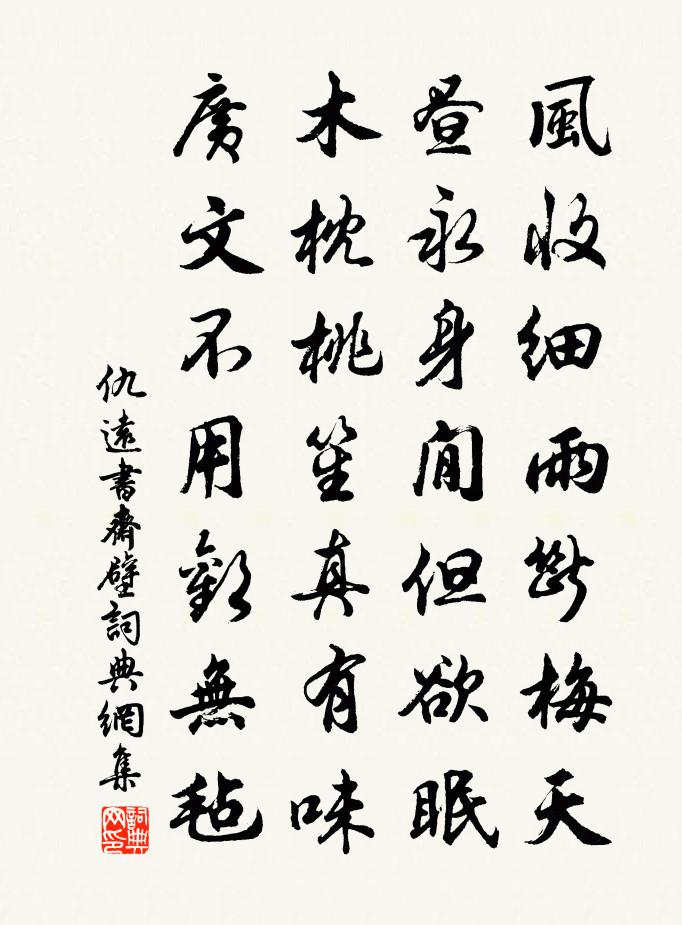 風收細雨斷梅天
晝永身閒但欲眠
木枕桃笙真有味
廣文不用歎無毡
仇遠書齋壁詞典網集
詞典網印